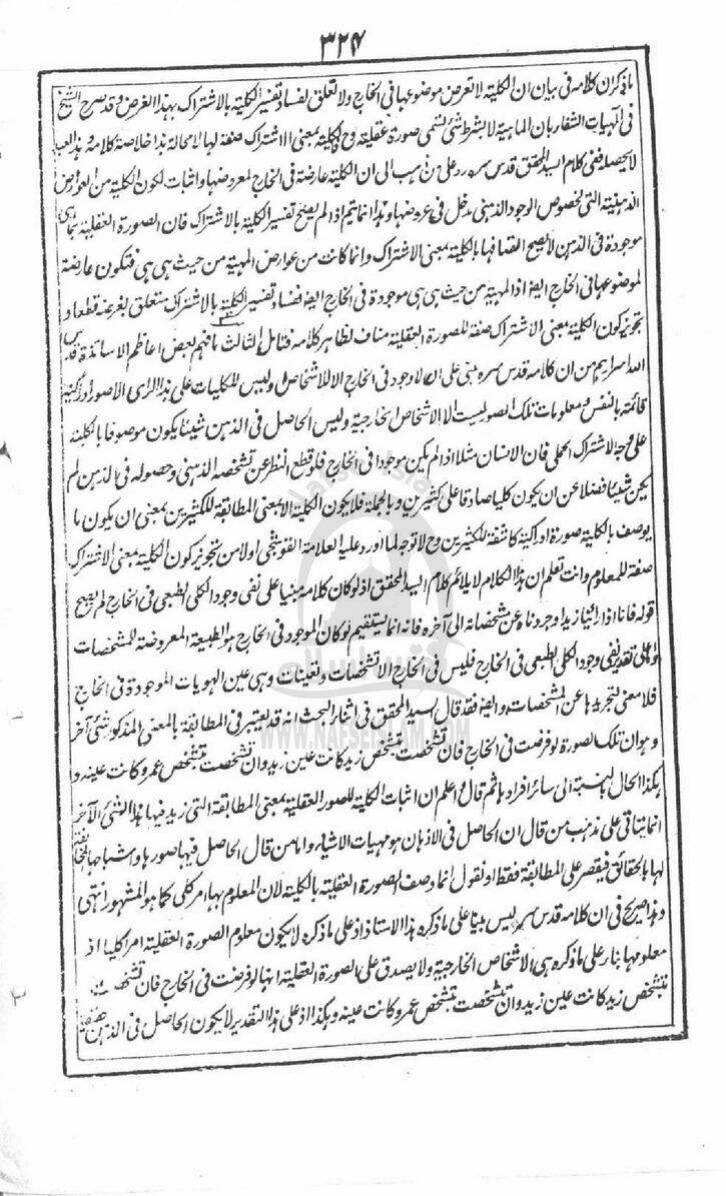 ٣٢٤
ما ذكر ان كلامه فى بيان ان الكلية لا تعرض موضوعها فى الخارج ولا تعلق لفساد تفسير الكلية بالاشتراك بهذا الغرض وقد صرح الشيخ
فى الهيات الشفا ربان الماهية لا بشرط شئ تسمى صورة عقلية وح الكلية بمعنى الاشتراك صفة لها لا محالة هذا خلاصة كلامه وهذا العبد
لا يحصله ففى كلام السيد المحقق قدس سره رد على من ذهب الى ان الكلية عارضة فى الخارج لمعروضها واثبات لكون الكلية من العوارض
الذهنية التى لخصوص الوجود الذهنى مدخل فى عروضها وهذا انما يتم اذا لم يصح تفسير الكلية بالاشتراك فان الصورة العقلية بما هى
موجودة فى الذهن لا يصح اتصافها بالكلية بمعنى الاشتراك وانما كانت من عوارض المهية من حيث هى هى فتكون عارضة
لموضوعها فى الخارج ايضا اذ المهية من حيث هى هى موجودة فى الخارج ايضا ففساد تفسير الكلية بالاشتراك متعلق بغرضه قطعا و
تجويز كون الكلية بمعنى الاشتراك صفة للصورة العقلية مناف لظاهر كلامه فتامل الثالث ما فهم بعض اعاظم الاساتذة قدس
الله اسرارهم من ان كلامه قدس سره مبنى على ان لا وجود فى الخارج الا للاشخاص وليس للكليات على هذا الراى الا صور ادراكية
قائمة بالنفس ومعلومات تلك الصور ليست الا الاشخاص الخارجية وليس الحاصل فى الذهن شيئا يكون موصوفا بالكلية
على وجه الاشتراك الحملى فان الانسان مثلا اذا لم يكن موجودا فى الخارج فلو قطع النظر عن تشخصه الذهنى وحصوله فى الذهن لم
يكن شيئا فضلا عن ان يكون كليا صادقا على كثيرين وبالجملة فلا يكون الكلية الا بمعنى المطابقة للكثيرين بمعنى ان يكون ما
يوصف بالكلية صورة ادراكية كاشفة للكثيرين وح لا توجه لما اورد عليه العلامة القوشجى اولا من تجويز كون الكلية بمعنى الاشتراك
صفة للمعلوم وانت تعلم ان هذا الكلام لا يلائم كلام السيد المحقق اذ لو كان كلامه مبنيا على نفى وجود الكلى الطبعى فى الخارج لم يصح
قوله فانا اذا راينا زيدا وجردناه عن مشخصاته الى آخره فانه انما يستقيم لو كان الموجود فى الخارج هو الطبيعة المعروضة للمشخصات
واما على تقدير نفى وجود الكلى الطبعى فى الخارج فليس فى الخارج الا تشخصات وتعينات وهى عين الهويات الموجودة فى الخارج
فلا معنى لتجريدها عن المشخصات وايضا فقد قال السيد المحقق فى اثناء البحث انه قد يعتبر فى المطابقة بالمعنى المذكور شئ آخر
وهو ان تلك الصورة لو فرضت فى الخارج فان تشخصت بتشخص زيد كانت عين زيد وان تشخصت بتشخص عمرو كانت عينه و
هكذا الحال بالنسبة الى سائر افرادها ثم قال واعلم ان اثبات الكلية للصور العقلية بمعنى المطابقة التى زيد فيها هذا الشئ الآخر
انما يتاتى على مذهب من قال ان الحاصل فى الاذهان هو مهيات الاشياء واما من قال الحاصل فيها صورها واشباحها المخالفة
لها بالحقائق فيقصر على المطابقة فقط او نقول انما وصف الصورة العقلية بالكلية لان المعلوم بها امر كلى كما هو المشهور انتهى
وهذا صريح فى ان كلامه قدس سره ليس مبنيا على ما ذكره هذا الاستاذ اذ على ما ذكره لا يكون معلوم الصورة العقلية امرا كليا اذ
معلومها بناء على ما ذكره هى الاشخاص الخارجية ولا يصدق على الصورة العقلية انها لو فرضت فى الخارج فان تشخصت
بتشخص زيد كانت عين زيد وان تشخصت بتشخص عمرو كانت عينه وهكذا اذ على هذا التقدير لا يكون الحاصل فى الذهن حقيقة
WWW.NAFSEISLAM.COM